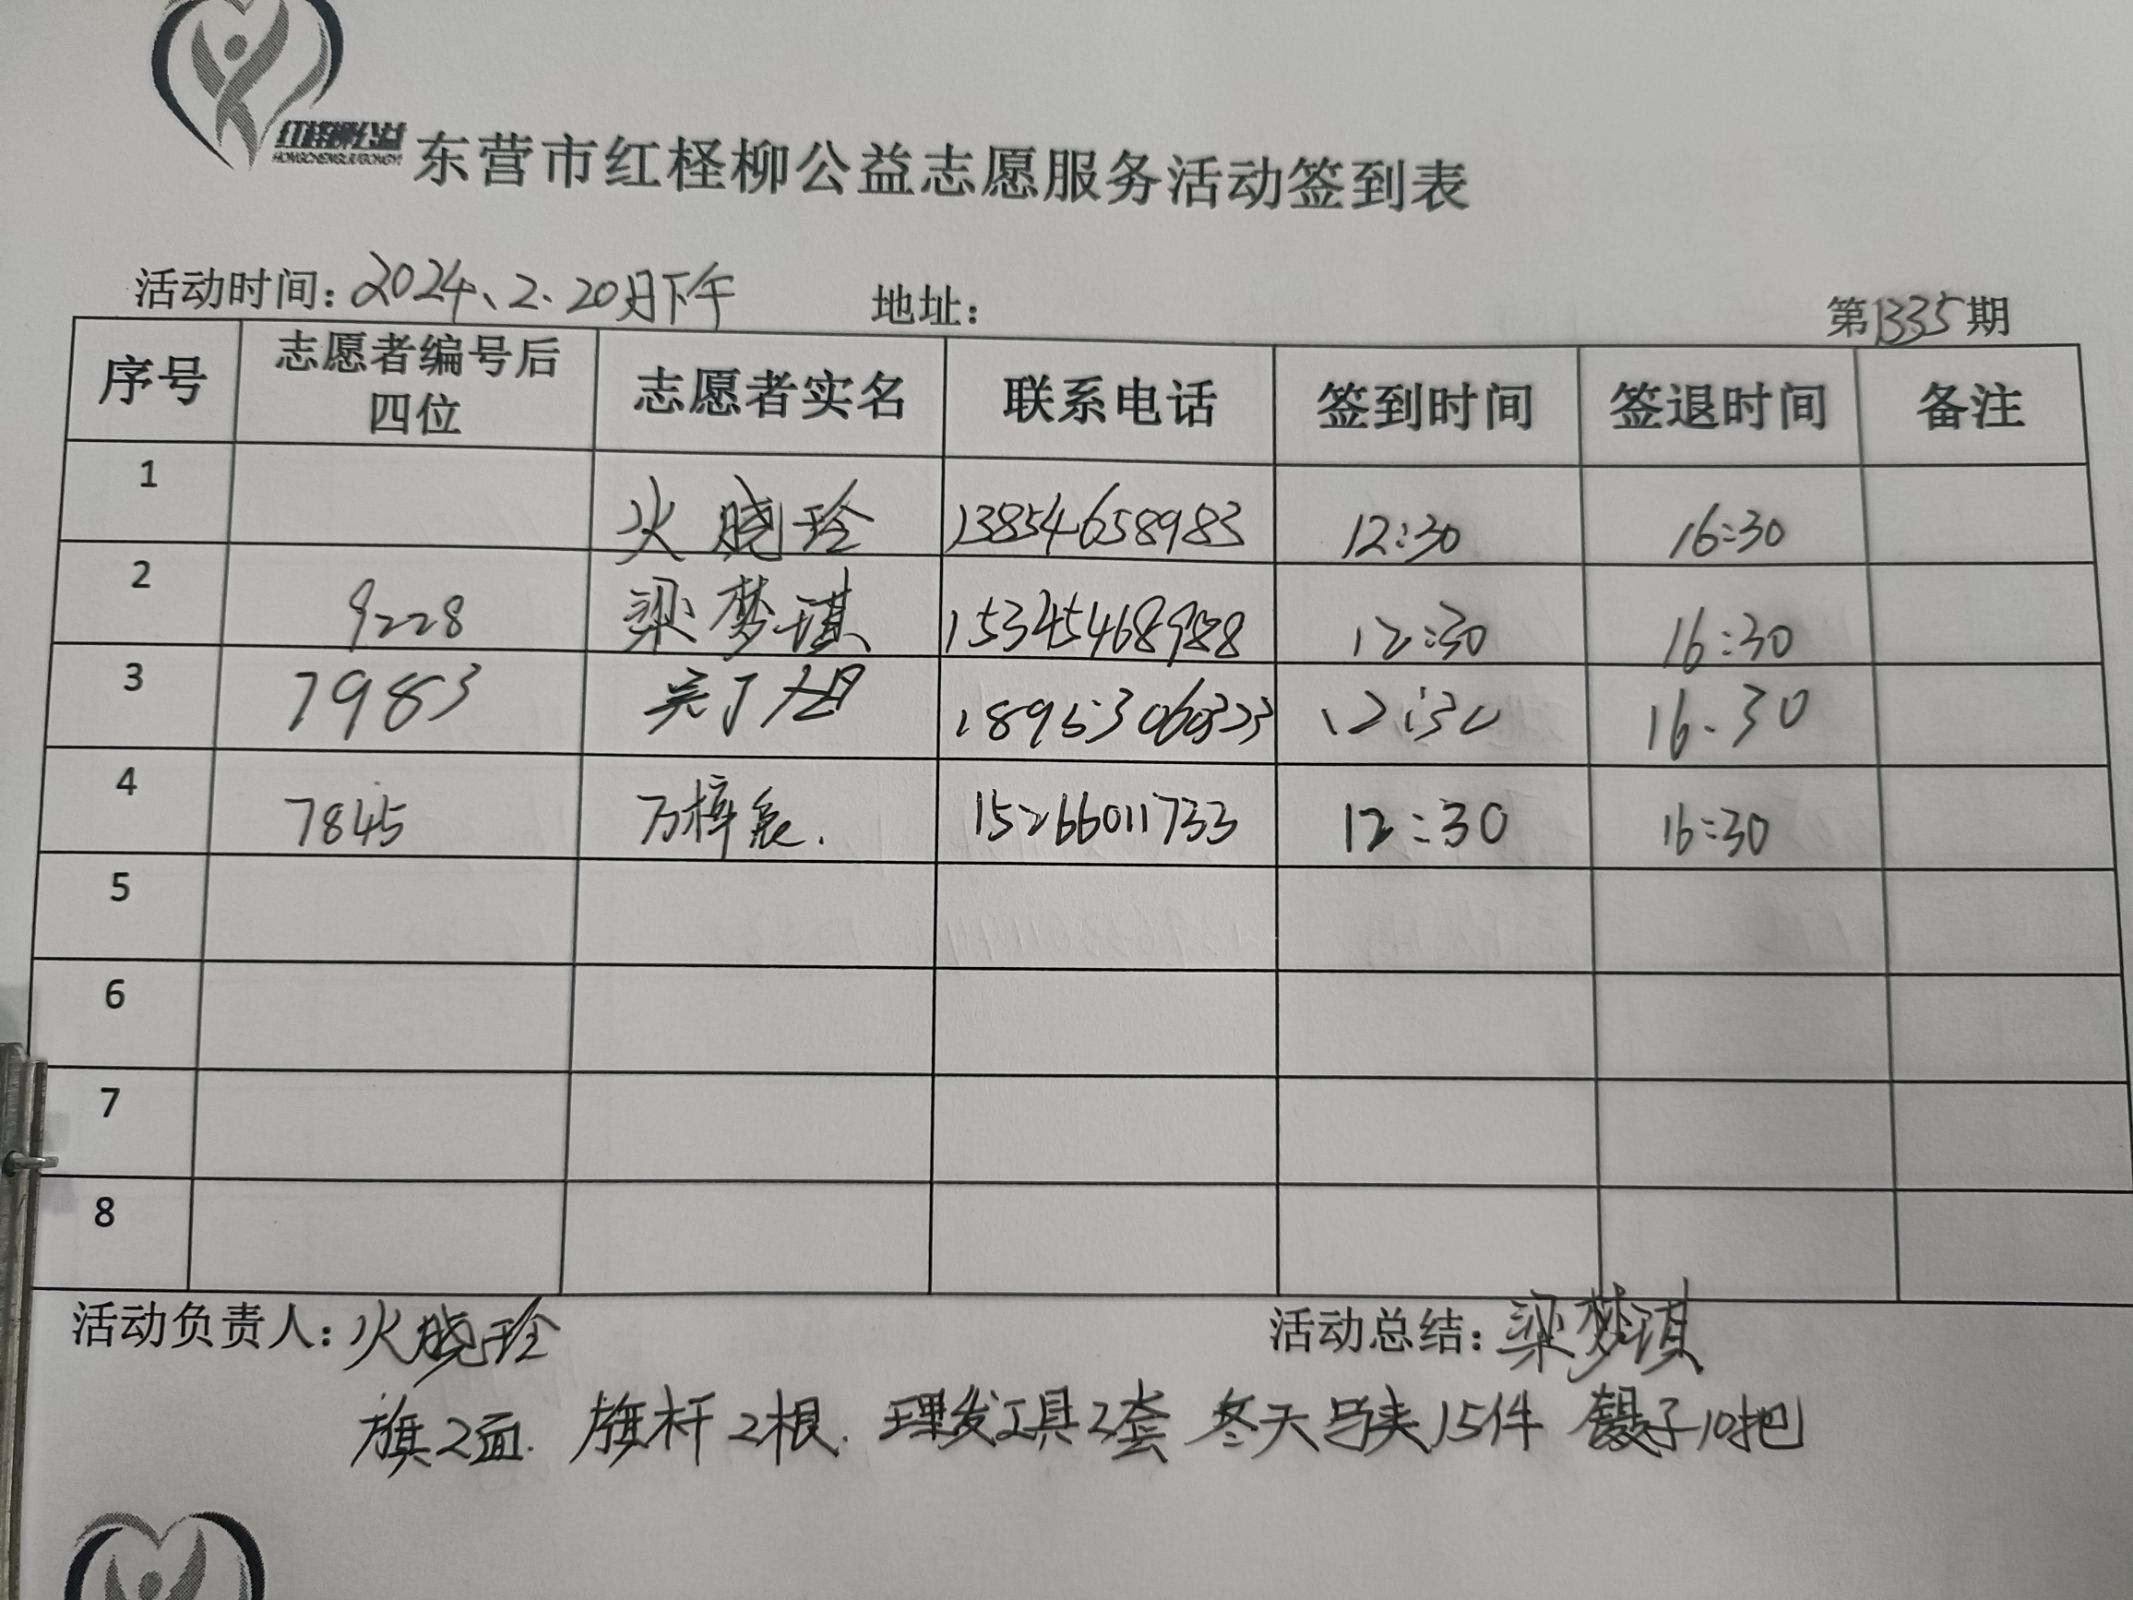 红柽柳公益
HONGCHENGLIUGONGYI
东营市红柽柳公益志愿服务活动签到表
活动时间：2024、2.20日下午 地址： 第1335期
序号 志愿者编号后四位 志愿者实名 联系电话 签到时间 签退时间 备注
1 火晓玲 13854658983 12:30 16:30
2 9228 梁梦琪 15345468988 12:30 16:30
3 7983 12:30 16.30
4 7845 万梓辰. 15266011733 12:30 16:30
5
6
7
8
活动负责人：火晓玲 活动总结：梁梦琪
旗2面. 旗杆2根. 理发工具2套 冬天马夹15件 镊子10把